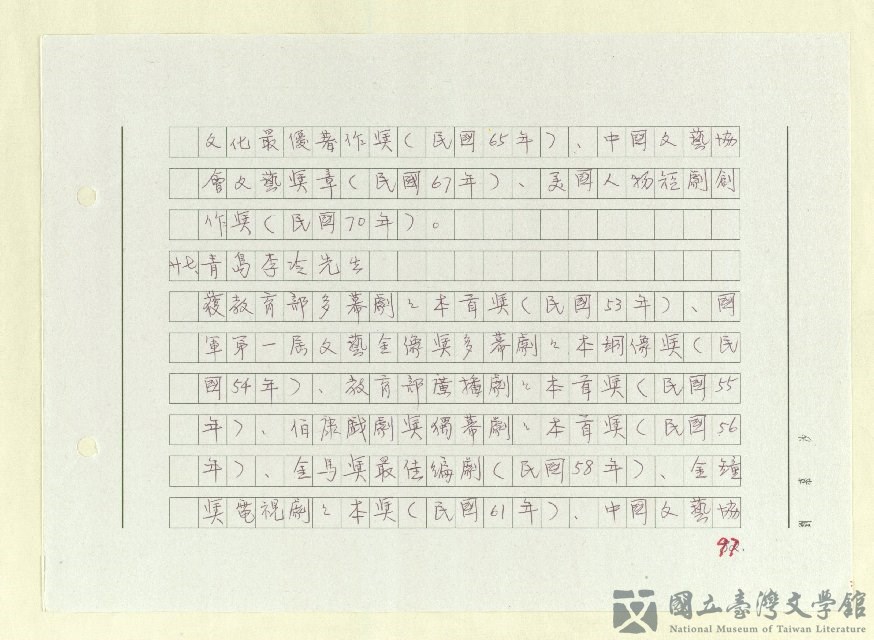 文化最優著作奬(民國65年)、中國文藝協
會文藝奬章(民國67年)、美國人物短劇創
作奬(民國70年)。
廿七青島李冷先生
獲教育部多幕劇々本首奬(民國53年)、國
軍第一屆文藝金像奬多幕劇々本銅像奬(民
國54年)、教育部廣播劇々本首奬(民國55
年)、伯康戲劇奬獨幕劇々本首奬(民國56
年)、金馬奬最佳編劇(民國58年)、金鐘
奬電視劇々本奬(民國61年)、中國文藝協
97.
國立臺灣文學館
National Museum of Taiwan Literature